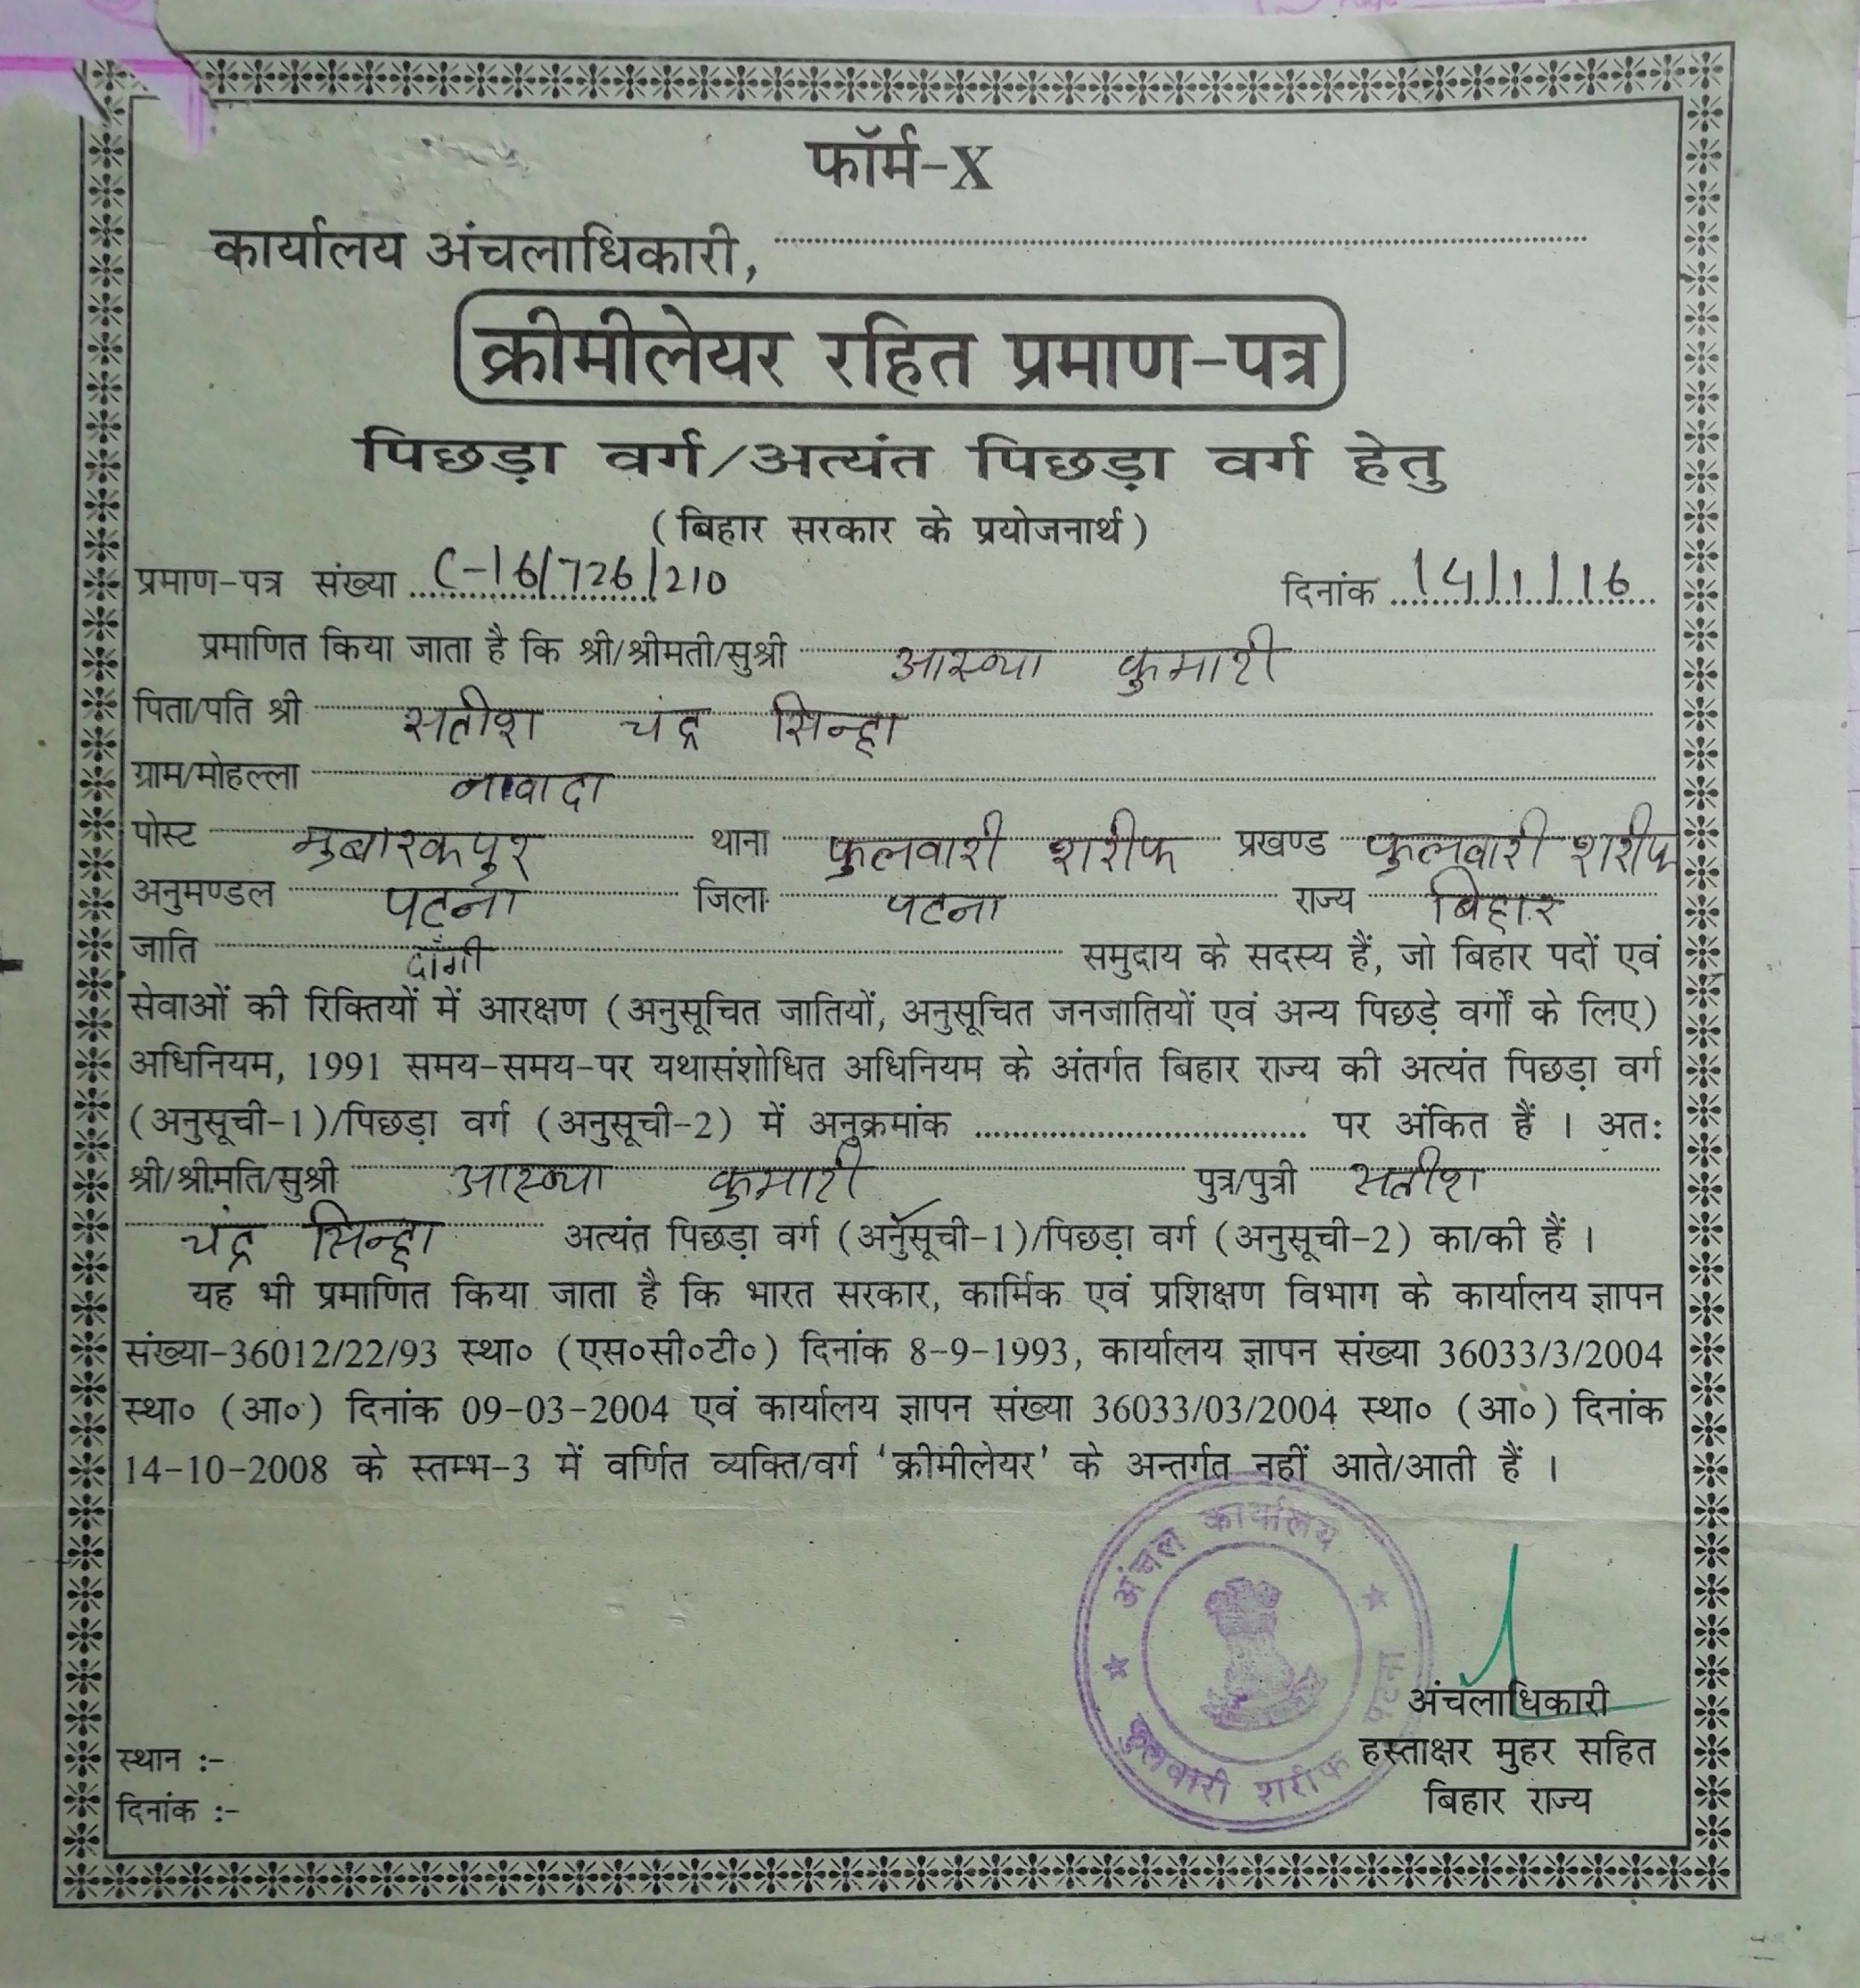 फॉर्म-X
कार्यालय अंचलाधिकारी, ........................
क्रीमीलेयर रहित प्रमाण-पत्र
पिछड़ा वर्ग/अत्यंत पिछड़ा वर्ग हेतु
(बिहार सरकार के प्रयोजनार्थ)
प्रमाण-पत्र संख्या C-16/726/210 दिनांक 14/1/16
प्रमाणित किया जाता है कि श्री/श्रीमती/सुश्री आस्था कुमारी
पिता/पति श्री सतीश चंद्र सिन्हा
ग्राम/मोहल्ला नावादा
पोस्ट मुबारकपुर थाना फुलवारी शरीफ प्रखण्ड फुलवारी शरीफ
अनुमण्डल पटना जिला पटना राज्य बिहार
जाति दाँगी समुदाय के सदस्य हैं, जो बिहार पदों एवं
सेवाओं की रिक्तियों में आरक्षण (अनुसूचित जातियों, अनुसूचित जनजातियों एवं अन्य पिछड़े वर्गों के लिए)
अधिनियम, 1991 समय-समय-पर यथासंशोधित अधिनियम के अंतर्गत बिहार राज्य की अत्यंत पिछड़ा वर्ग
(अनुसूची-1)/पिछड़ा वर्ग (अनुसूची-2) में अनुक्रमांक ........................ पर अंकित हैं । अतः
श्री/श्रीमति/सुश्री आस्था कुमारी पुत्र/पुत्री सतीश
चंद्र सिन्हा अत्यंत पिछड़ा वर्ग (अनुसूची-1)/पिछड़ा वर्ग (अनुसूची-2) का/की हैं ।
यह भी प्रमाणित किया जाता है कि भारत सरकार, कार्मिक एवं प्रशिक्षण विभाग के कार्यालय ज्ञापन
संख्या-36012/22/93 स्था० (एस०सी०टी०) दिनांक 8-9-1993, कार्यालय ज्ञापन संख्या 36033/3/2004
स्था० (आ०) दिनांक 09-03-2004 एवं कार्यालय ज्ञापन संख्या 36033/03/2004 स्था० (आ०) दिनांक
14-10-2008 के स्तम्भ-3 में वर्णित व्यक्ति/वर्ग 'क्रीमीलेयर' के अन्तर्गत नहीं आते/आती हैं ।
अंचल कार्यालय
फुलवारी शरीफ पटना
अंचलाधिकारी
हस्ताक्षर मुहर सहित
बिहार राज्य
स्थान :-
दिनांक :-